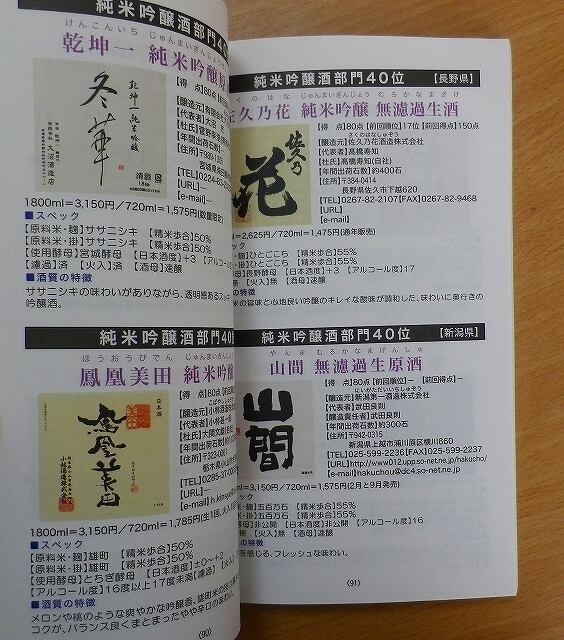 純米吟醸酒部門40位
けんこんいち じゅんまいぎんじょう
乾坤一 純米吟醸
冬華
乾坤一純米吟醸
大沼酒造店
清酒
1.8ℓ詰
【得 点】80点
【醸造元】有限会社
【代表者】大沼
【杜氏】菅野幸
【年間出荷石数】
【住所】〒989-1
宮城県柴田
【TEL】0224-83-2
【URL】ー
【e-mail】ー
1800ml=3,150円/720ml=1,575円(数量限定)
■スペック
【原料米・麹】ササニシキ 【精米歩合】50%
【原料米・掛】ササニシキ 【精米歩合】50%
【使用酵母】宮城酵母 【日本酒度】+3 【アルコール
【濾過】済 【火入】済 【酒母】速醸
■酒質の特徴
ササニシキの味わいがありながら、透明感あるスッキ
吟醸酒。
純米吟醸酒部門40位
ほうおうびでん じゅんまいぎんじょう
鳳凰美田 純米吟醸
日本酒
鳳凰美田
小林酒造株式会社
【得 点】80点【前回
こばやししゅぞう
【醸造元】小林酒造株
【代表者】小林甚一郎
【杜氏】大関文蔵
【年間出荷石数】
【住所】〒323-0
栃木県小山
【TEL】0285-37-0
【URL】ー
【e-mail】h.kinsyo
1800ml=3,150円/720ml=1,785円(生1回、火入
■スペック
【原料米・麹】雄町 【精米歩合】50%
【原料米・掛】雄町 【精米歩合】50%
【使用酵母】とちぎ酵母 【日本酒度】±0〜+2
【アルコール度】16度以上17度未満【濾過】
■酒質の特徴
メロンや桃のような爽やかな吟醸香、雄町米の
コクが、バランス良くまとまったやや辛口の味わい。
(90)
純米吟醸酒部門40位 【長野県】
さくのはな じゅんまいぎんじょう むろかなまざけ
佐久乃花 純米吟醸 無濾過生酒
佐久乃
花
【得 点】80点【前回順位】17位【前回得点】150点
さくのはなしゅぞう
【醸造元】佐久乃花酒造株式会社
【代表者】髙橋寿知
【杜氏】髙橋寿知(自社)
【年間出荷石数】約400石
【住所】〒384-0414
長野県佐久市下越620
【TEL】0267-82-2107【FAX】0267-82-9468
【URL】
【e-mail】
=2,625円/720ml=1,475円(通年販売)
ック
・麹】ひとごこち 【精米歩合】55%
・掛】ひとごこち 【精米歩合】55%
母】長野酵母 【日本酒度】+3 【アルコール度】17
無 【火入】無 【酒母】速醸
の特徴
の旨味と心地良い吟醸のキレイな酸味が調和した、味わいに奥行きの
純米吟醸酒部門40位 【新潟県】
やんま むろかなまげんしゅ
山間 無濾過生原酒
山間
【得 点】80点【前回順位】ー 【前回得点】ー
にいがただいいちしゅぞう
【醸造元】新潟第一酒造株式会社
【代表者】武田良則
【醸造責任者】武田良則
【年間出荷石数】約300石
【住所】〒942-0315
新潟県上越市浦川原区横川660
【TEL】025-599-2236【FAX】025-599-2237
【URL】http://www012.upp.so-net.ne.jp/hakucho/
【e-mail】hakuchou@dc4.so-net.ne.jp
=3,150円/720ml=1,575円(2月と9月発売)
ック
・麹】五百万石 【精米歩合】55%
・掛】五百万石 【精米歩合】55%
母】非公開 【日本酒度】非公開 【アルコール度】16
無 【火入】無 【酒母】速醸
の特徴
を感じる、フレッシュな味わい。
(91)